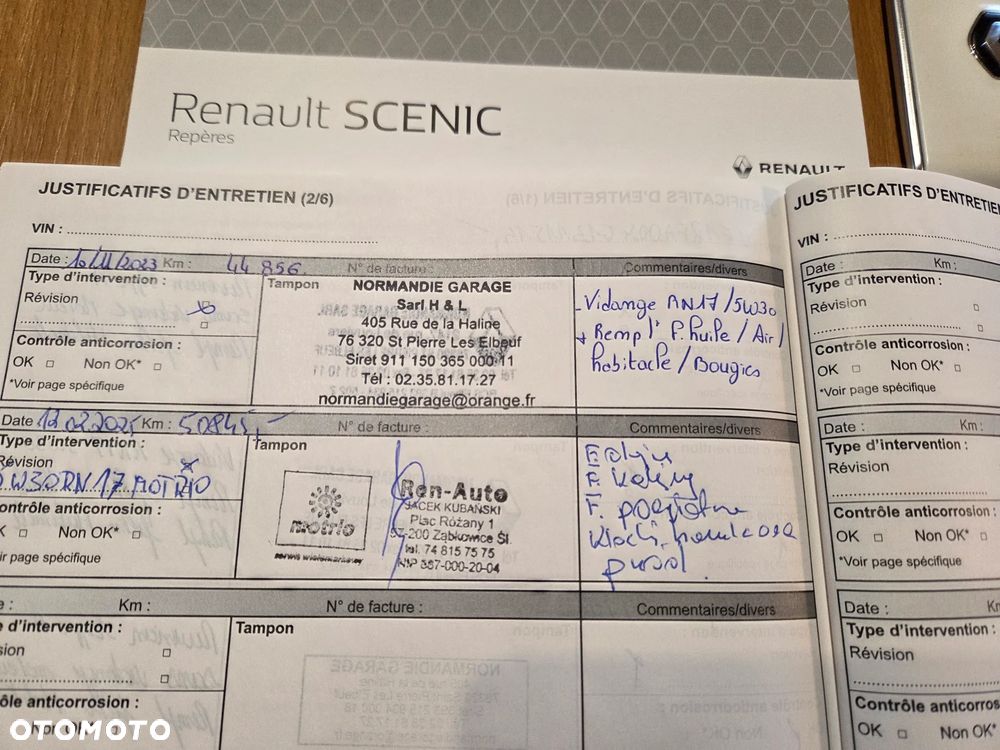 Renault SCENIC
Repères
RENAULT
JUSTIFICATIFS D'ENTRETIEN (2/6)
VIN :
Date : 10/11/2023 Km : 44 856 N° de facture : Commentaires/divers
Type d'intervention :
Révision
Contrôle anticorrosion :
OK Non OK*
*Voir page spécifique
Tampon
NORMANDIE GARAGE
Sarl H & L
405 Rue de la Haline
76 320 St Pierre Les Elbeuf
Siret 911 150 365 000 11
Tél : 02.35.81.17.27
normandiegarage@orange.fr
- Vidange RN17/5W30
+ Rempl' F. huile / Air /
habitacle / Bougies
Date 12.02.2025 Km : 50845,- N° de facture : Commentaires/divers
Type d'intervention :
Révision
5W30RN17 MOTRIO
ontrôle anticorrosion :
K Non OK*
ir page spécifique
Tampon
motrio
serwis wielomarkowy
Ren-Auto
JACEK KUBAŃSKI
Plac Różany 1
57-200 Ząbkowice Śl.
tel. 74 815 75 75
NIP 887-000-20-04
F. oleju
F. kabiny
F. powietrza
Klocki hamulcowe
przód.
e : Km : N° de facture : Commentaires/divers
e d'intervention :
sion
ôle anticorrosion :
Non OK
Tampon
JUSTIFICATIFS D'ENTRETIEN
VIN :
Date : Km :
Type d'intervention :
Révision
Contrôle anticorrosion :
OK Non OK*
*Voir page spécifique
Date : Km :
Type d'intervention :
Révision
Contrôle anticorrosion :
OK Non OK*
*Voir page spécifique
Date : Km
Type d'intervention :
Révision
Contrôle anticorros
OK Non OK*
OTOMOTO